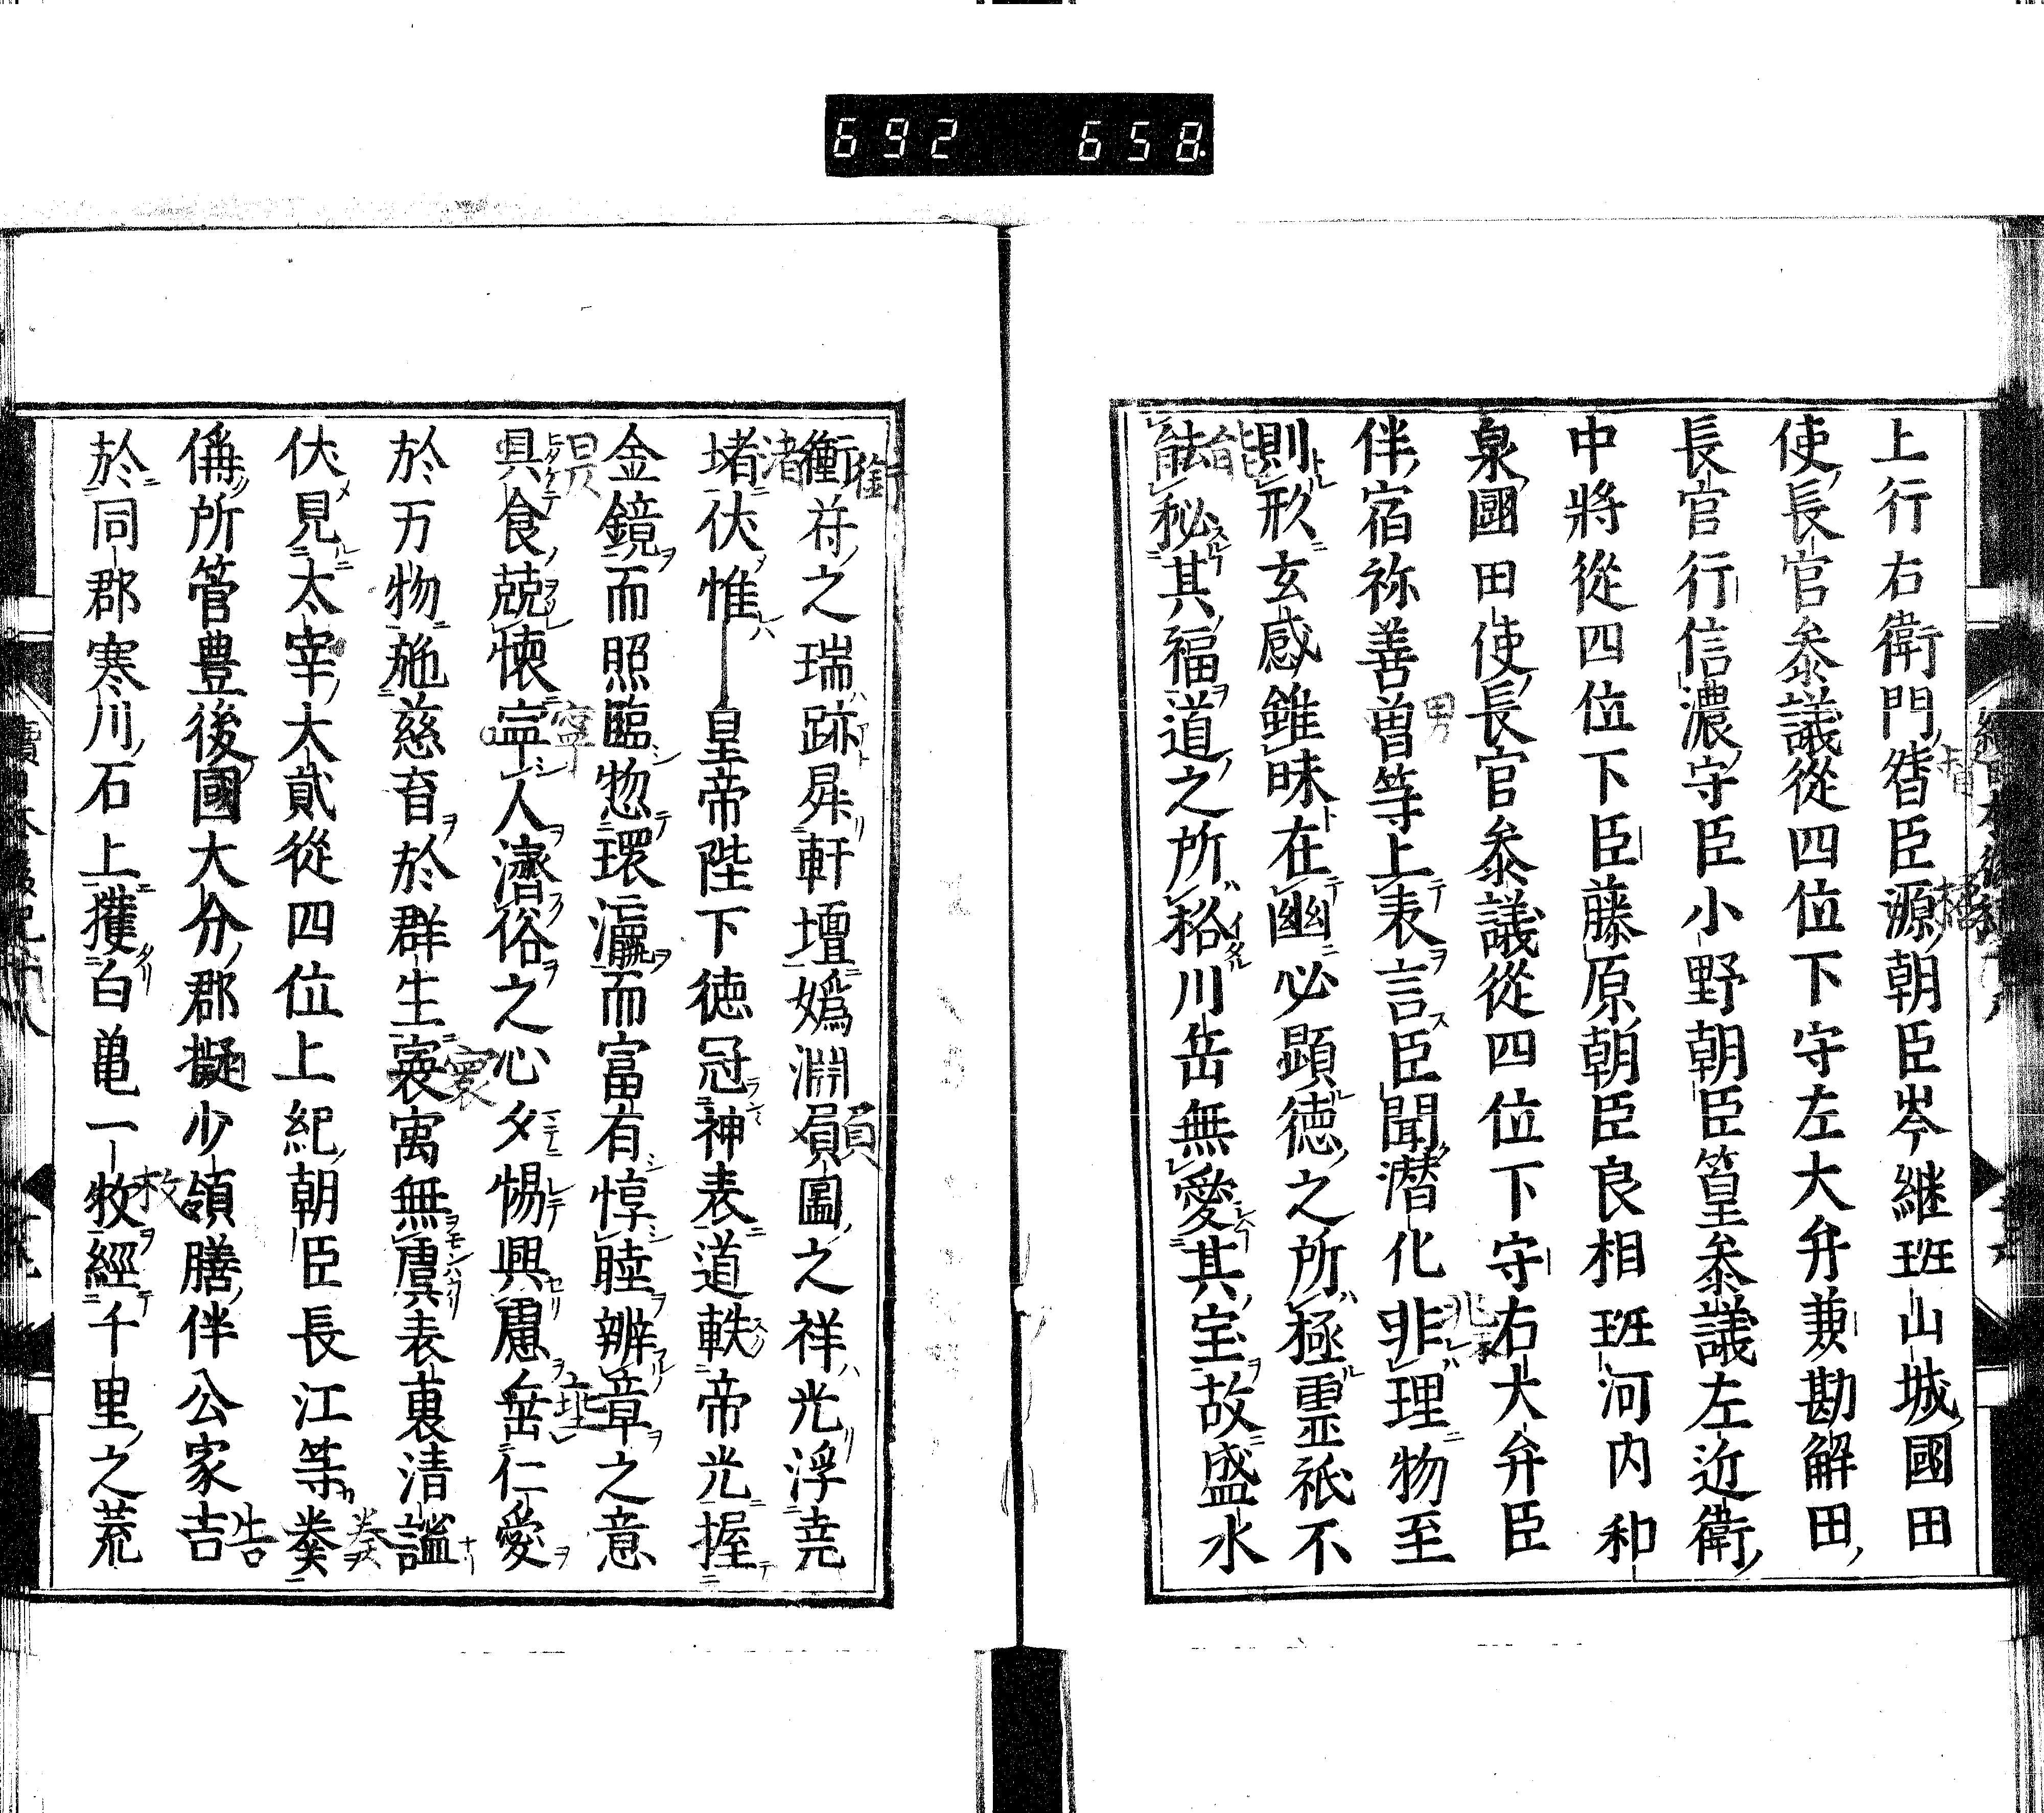 692 658
上行右衛門督臣源朝臣岑継班山城國田
使長官参議從四位下守左大弁兼勘解田
長官行信濃守臣小野朝臣篁参議左近衛
中將從四位下臣藤原朝臣良相班河内和
泉國田使長官参議從四位下守右大弁臣
伴宿祢善曽等上表言臣聞潜化非理物至
則形玄感雖昧在幽必顕徳之所極霊祇不
能秘其福道之所格川岳無愛其宝故盛水
衝苻之瑞跡昇軒壇嬀淵眞圖之祥光浮尭
堵伏惟皇帝陛下徳冠神表道軼帝光握
金鏡而照臨惣環瀛而富有惇睦辨章之意
具食兢懐寧人濟俗之心夕惕興慮岳仁愛
於万物施慈育於群生寰寓無虞表裏清謐
伏見太宰大貳從四位上紀朝臣長江等奏
偁所管豊後國大分郡擬少領膳伴公家吉
於同郡寒川石上獲白亀一牧經千里之荒